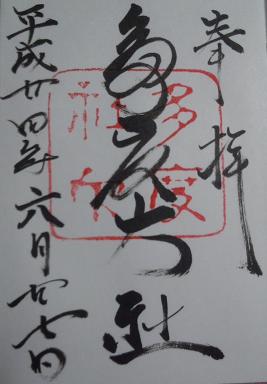 奉拝
多度大社
多度
平成廿四年六月廿七日